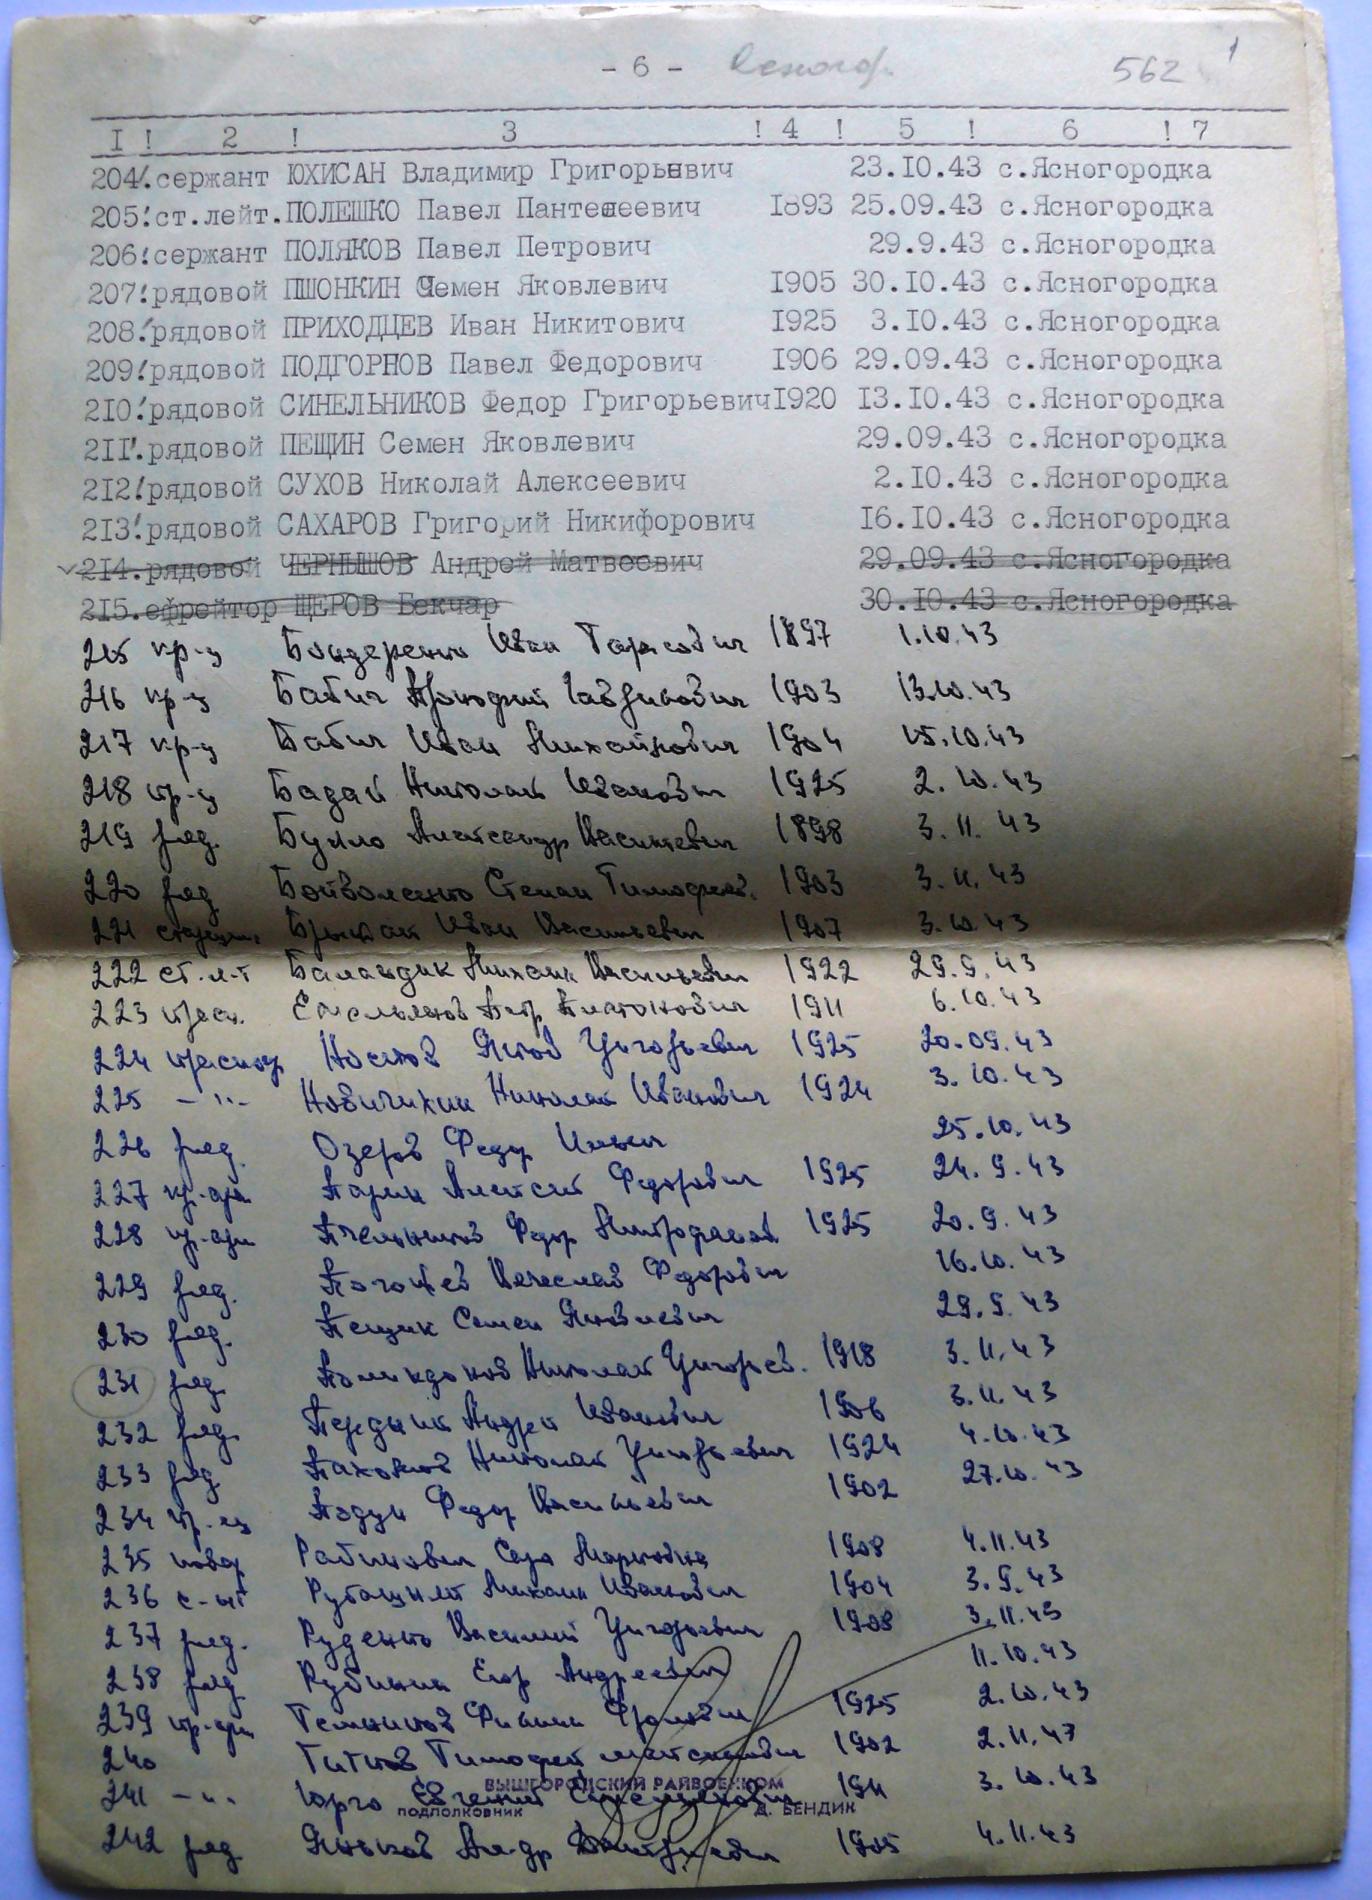 - 6 - 562 1
I ! 2 ! 3 ! 4 ! 5 ! 6 ! 7
204. сержант ЮХИСАН Владимир Григорьевич 23.I0.43 с.Ясногородка
205. ст.лейт. ПОЛЕШКО Павел Пантелеевич I893 25.09.43 с.Ясногородка
206. сержант ПОЛЯКОВ Павел Петрович 29.9.43 с.Ясногородка
207. рядовой ПШОНКИН Семен Яковлевич I905 30.I0.43 с.Ясногородка
208. рядовой ПРИХОДЦЕВ Иван Никитович I925 3.I0.43 с.Ясногородка
209. рядовой ПОДГОРНОВ Павел Федорович I906 29.09.43 с.Ясногородка
2I0. рядовой СИНЕЛЬНИКОВ Федор Григорьевич I920 I3.I0.43 с.Ясногородка
2II. рядовой ПЕЩИН Семен Яковлевич 29.09.43 с.Ясногородка
2I2. рядовой СУХОВ Николай Алексеевич 2.I0.43 с.Ясногородка
2I3. рядовой САХАРОВ Григорий Никифорович I6.I0.43 с.Ясногородка
2I4. рядовой ЧЕРНЫШОВ Андрей Матвеевич 29.09.43 с.Ясногородка
2I5. ефрейтор ЩЕРОВ Бекчар 30.I0.43 с.Ясногородка
215 кр-ц Бондаренко Иван Тарасович 1897 1.10.43
216 кр-ц Бабич 1903 13.10.43
217 кр-ц Бабич Иван Михайлович 1904 15.10.43
218 кр-ц Бадай Николай Иванович 1925 2.10.43
219 ряд. Александр Васильевич 1898 3.11.43
220 ряд Степан Тимофеев. 1903 3.11.43
221 Иван Васильевич 1907 3.10.43
222 ст.л-т Михаил Васильевич 1922 29.9.43
223 красн. Емельянов Петр Платонович 1911 6.10.43
224 Носков Яков Григорьевич 1925 20.09.43
225 -"- Новичихин Николай Иванович 1924 3.10.43
226 ряд. Озеров Федор Ильич 25.10.43
227 кр-арм Алексей Федорович 1925 24.9.43
228 кр-арм Пчельников Федор 1925 20.9.43
229 ряд. Вячеслав Федорович 16.10.43
230 ряд. Пещик Семен Яковлевич 29.9.43
231 ряд. Николай Григорьев. 1918 3.11.43
232 ряд. Андрей Иванович 1906 3.11.43
233 ряд Николай Григорьевич 1924 4.10.43
234 Падун Федор Васильевич 1902 27.10.43
235 повар Рабинович Марковна 1908 4.11.43
236 с-нт Михаил Иванович 1904 3.9.43
237 ряд. Руденко Василий Григорьевич 1908 3.11.43
238 ряд. Егор Андреевич 11.10.43
239 кр-арм Темников Филипп Фролович 1925 2.10.43
240 Титков Тимофей 1902 2.11.43
ВЫШГОРОДСКИЙ РАЙВОЕНКОМ
241 -"- Юрго Евгений 1911 3.10.43
ПОДПОЛКОВНИК Д. БЕНДИК
242 ряд. Ал-др Дмитриевич 1905 4.11.43